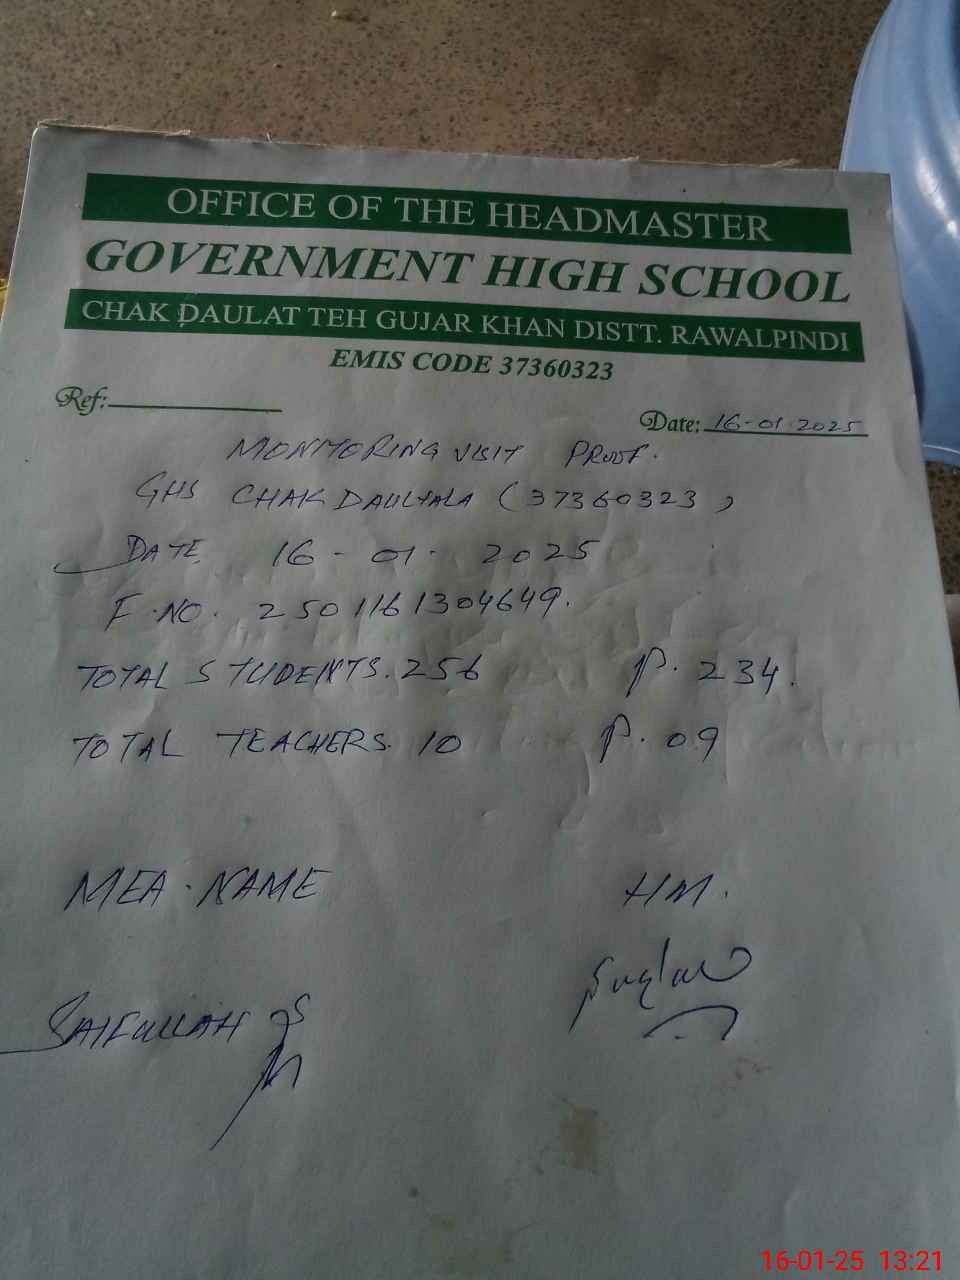 OFFICE OF THE HEADMASTER
GOVERNMENT HIGH SCHOOL
CHAK DAULAT TEH GUJAR KHAN DISTT. RAWALPINDI
EMIS CODE 37360323
Ref:
Date: 16-01-2025
MONITORING VISIT PROOF.
GHS CHAK DAULTALA (37360323)
DATE 16-01-2025
F.NO. 2501161304649.
TOTAL STUDENTS. 256 P. 234.
TOTAL TEACHERS. 10 P. 09
MEA. NAME HM.
SAIFULLAH
16-01-25 13:21